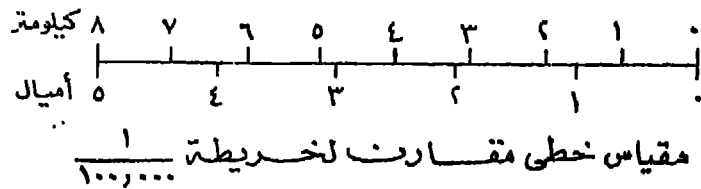 كيلومتر ٨ ٧ ٦ ٥ ٤ ٣ ٢ ١ ٠
أميال ٥ ٤ ٣ ٢ ١ ٠
مقياس خطى مقارن لخريطة ١/١٠٠,٠٠٠